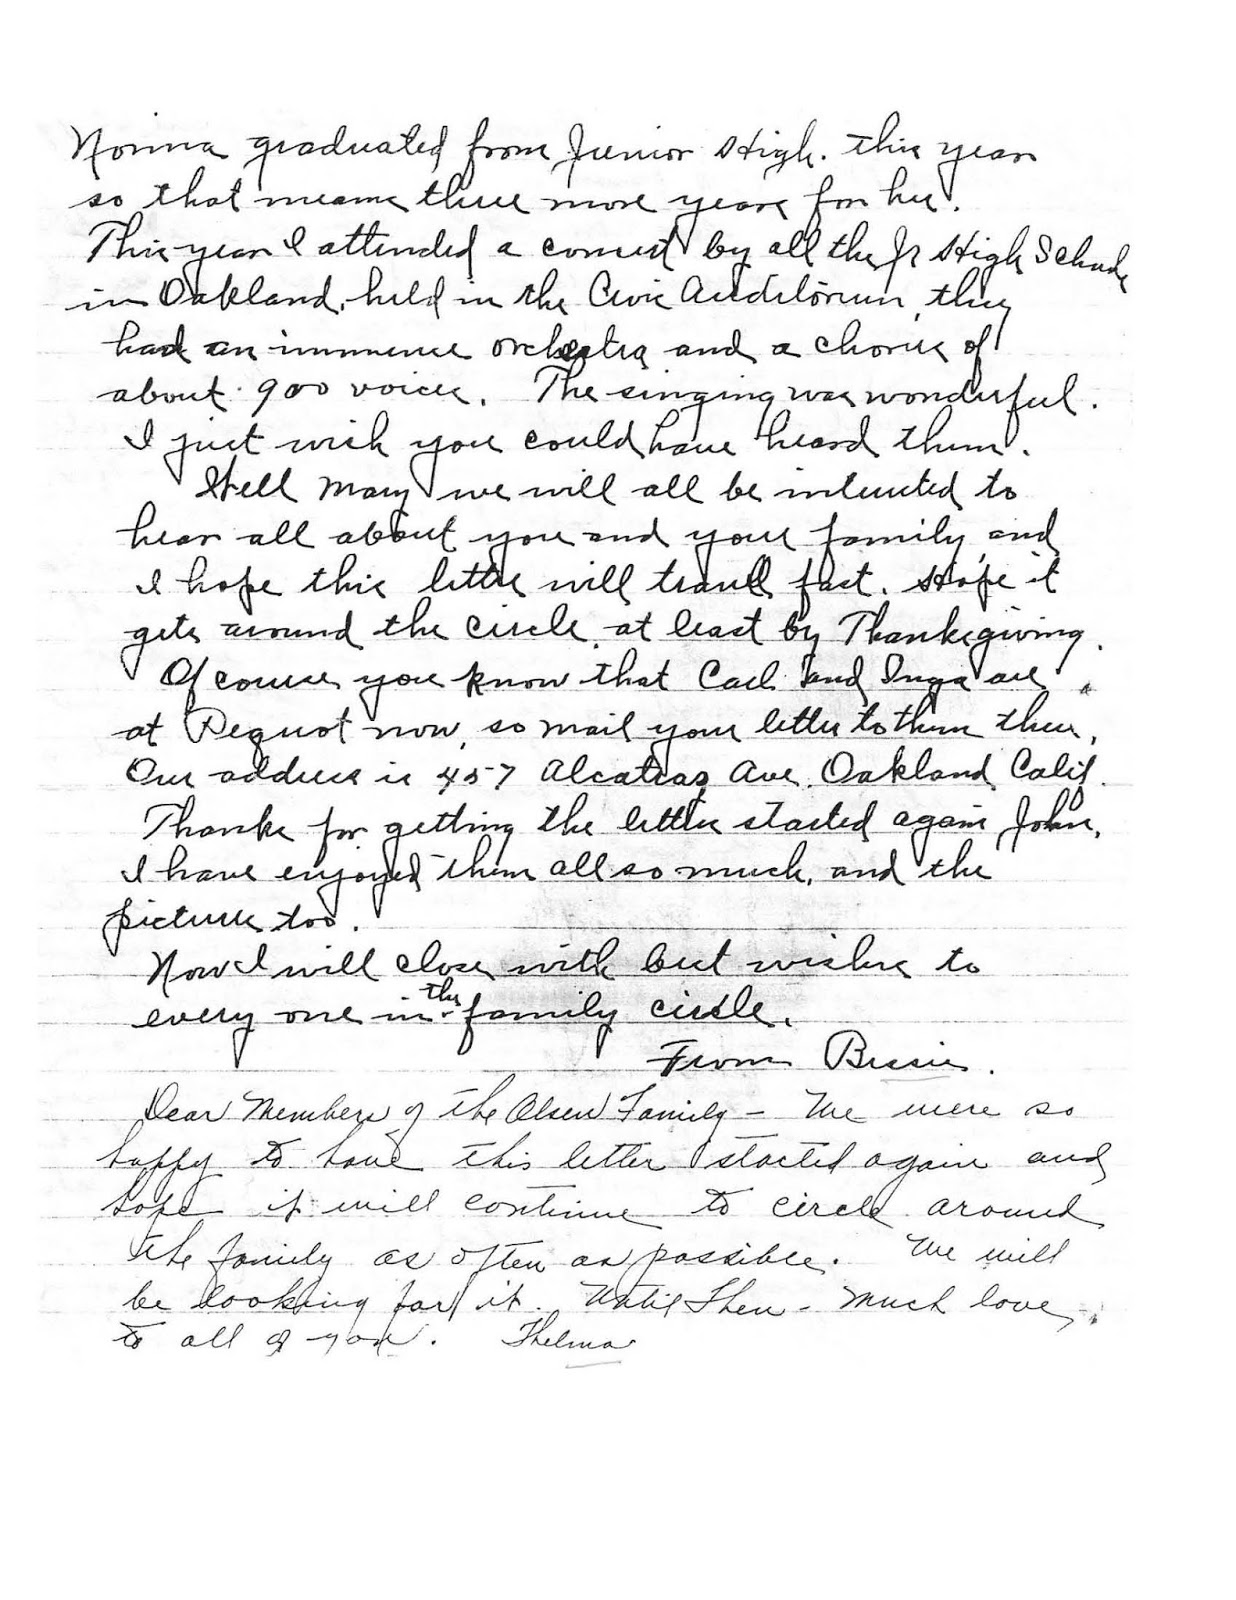 Norma graduated from Junior High. this year
so that means three more years for her.
This year I attended a concert by all the Jr High Schools
in Oakland, held in the Civic Auditorium, they
had an immense orchestra and a chorus of
about 900 voices. The singing was wonderful.
I just wish you could have heard them.
Well Mary we will all be interested to
hear all about you and your family, and
I hope this letter will travel fast. Hope it
gets around the circle, at least by Thanksgiving.
Of course you know that Carl and Inga are
at Pequot now, so mail your letter to them there,
Our address is 457 Alcatras Ave. Oakland Calif.
Thanks for getting the letter started again John,
I have enjoyed them all so much, and the
picture too.
Now I will close with best wishes to
every one in the family circle.
From Bessie.
Dear Members of the Olsen Family - We were so
happy to have this letter started again and
hope it will continue to circle around
the family as often as possible. We will
be looking for it. Until Then - Much love,
to all of you. Thelma